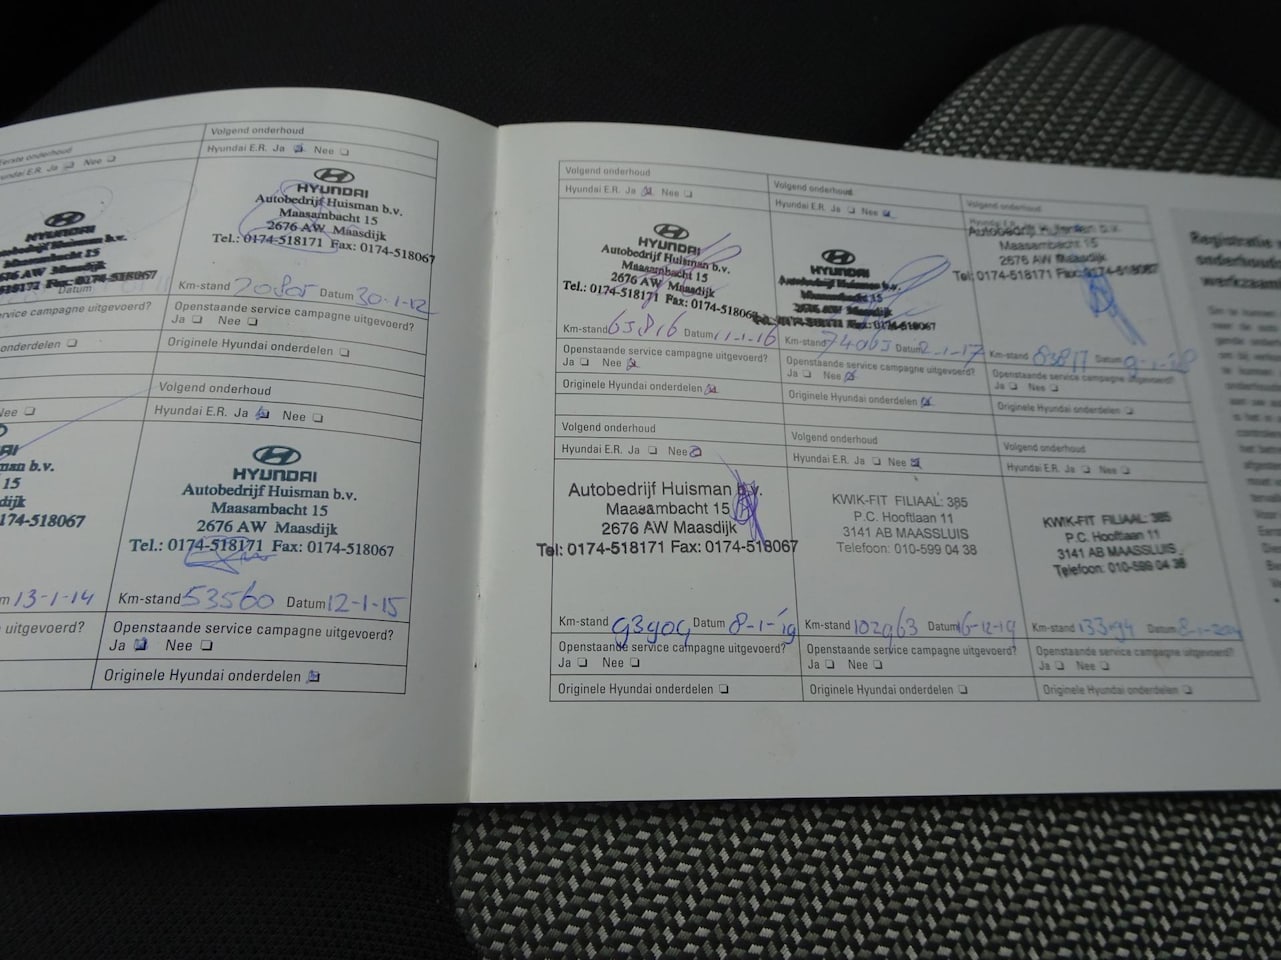 Eerste onderhoud
Hyundai E.R. Ja Nee
HYUNDAI
Autobedrijf Huisman b.v.
Maasambacht 15
2676 AW Maasdijk
0174-518067
Datum
campagne uitgevoerd?
onderdelen
Volgend onderhoud
Hyundai E.R. Ja Nee
HYUNDAI
Autobedrijf Huisman b.v.
Maasambacht 15
2676 AW Maasdijk
Tel.: 0174-518171 Fax: 0174-518067
Km-stand 20805 Datum 30-1-12
Openstaande service campagne uitgevoerd?
Ja Nee
Originele Hyundai onderdelen
Nee
man b.v.
15
dijk
174-518067
13-1-14
uitgevoerd?
Volgend onderhoud
Hyundai E.R. Ja Nee
HYUNDAI
Autobedrijf Huisman b.v.
Maasambacht 15
2676 AW Maasdijk
Tel.: 0174-518171 Fax: 0174-518067
Km-stand 53560 Datum 12-1-15
Openstaande service campagne uitgevoerd?
Ja Nee
Originele Hyundai onderdelen
Volgend onderhoud
Hyundai E.R. Ja Nee
HYUNDAI
Autobedrijf Huisman b.v.
Maasambacht 15
2676 AW Maasdijk
Tel.: 0174-518171 Fax: 0174-518067
Km-stand 65816 Datum 11-1-16
Openstaande service campagne uitgevoerd?
Ja Nee
Originele Hyundai onderdelen
Volgend onderhoud
Hyundai E.R. Ja Nee
HYUNDAI
Autobedrijf Huisman b.v.
Maasambacht 15
2676 AW Maasdijk
0174-518171 Fax: 0174-518067
Km-stand 74065 Datum 2-1-17
Openstaande service campagne uitgevoerd?
Ja Nee
Originele Hyundai onderdelen
Volgend onderhoud
Hyundai E.R. Ja Nee
Autobedrijf Huisman b.v.
Maasambacht 15
2676 AW Maasdijk
Tel: 0174-518171 Fax: 0174-518067
Km-stand Datum
Openstaande service campagne uitgevoerd?
Ja Nee
Originele Hyundai onderdelen
Volgend onderhoud
Hyundai E.R. Ja Nee
Autobedrijf Huisman b.v.
Maasambacht 15
2676 AW Maasdijk
Tel: 0174-518171 Fax: 0174-518067
Km-stand 93909 Datum 8-1-19
Openstaande service campagne uitgevoerd?
Ja Nee
Originele Hyundai onderdelen
Volgend onderhoud
Hyundai E.R. Ja Nee
KWIK-FIT FILIAAL: 385
P.C. Hooftlaan 11
3141 AB MAASSLUIS
Telefoon: 010-599 04 38
Km-stand 102963 Datum 16-12-19
Openstaande service campagne uitgevoerd?
Ja Nee
Originele Hyundai onderdelen
Volgend onderhoud
Hyundai E.R. Ja Nee
KWIK-FIT FILIAAL: 385
P.C. Hooftlaan 11
3141 AB MAASSLUIS
Telefoon: 010-599 04 38
Km-stand Datum
Openstaande service campagne uitgevoerd?
Ja Nee
Originele Hyundai onderdelen
Registratie